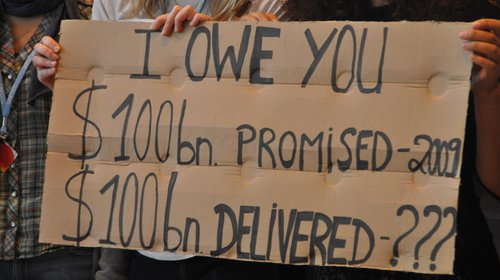 I OWE YOU
$100bn. PROMISED-2009
$100bn DELIVERED-???